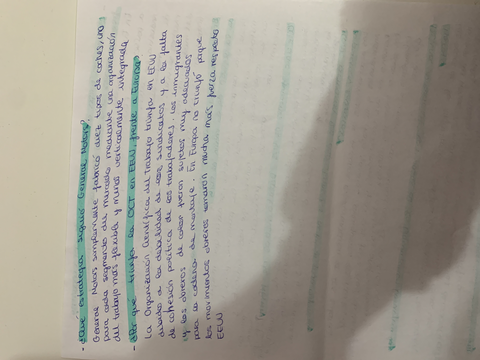 - ¿Qué estrategia siguió General Motors?
General Motors simplemente fabricó diez tipos de coches, uno
para cada segmento del mercado mediante una organización
del trabajo más flexible y menos verticalmente integrada
- ¿Por que triunfa la OCT en EEUU, frente a Europa?
La Organización Científica del Trabajo triunfa en EEUU
debido a la debilidad de los sindicatos y a la falta
de cohesión política de los trabajadores. Los inmigrantes
y los obreros de color fueron sujetos muy adecuados
para la cadena de montaje. En Europa no triunfó porque
los movimientos obreros tomaron mucha más fuerza respecto
EEUU